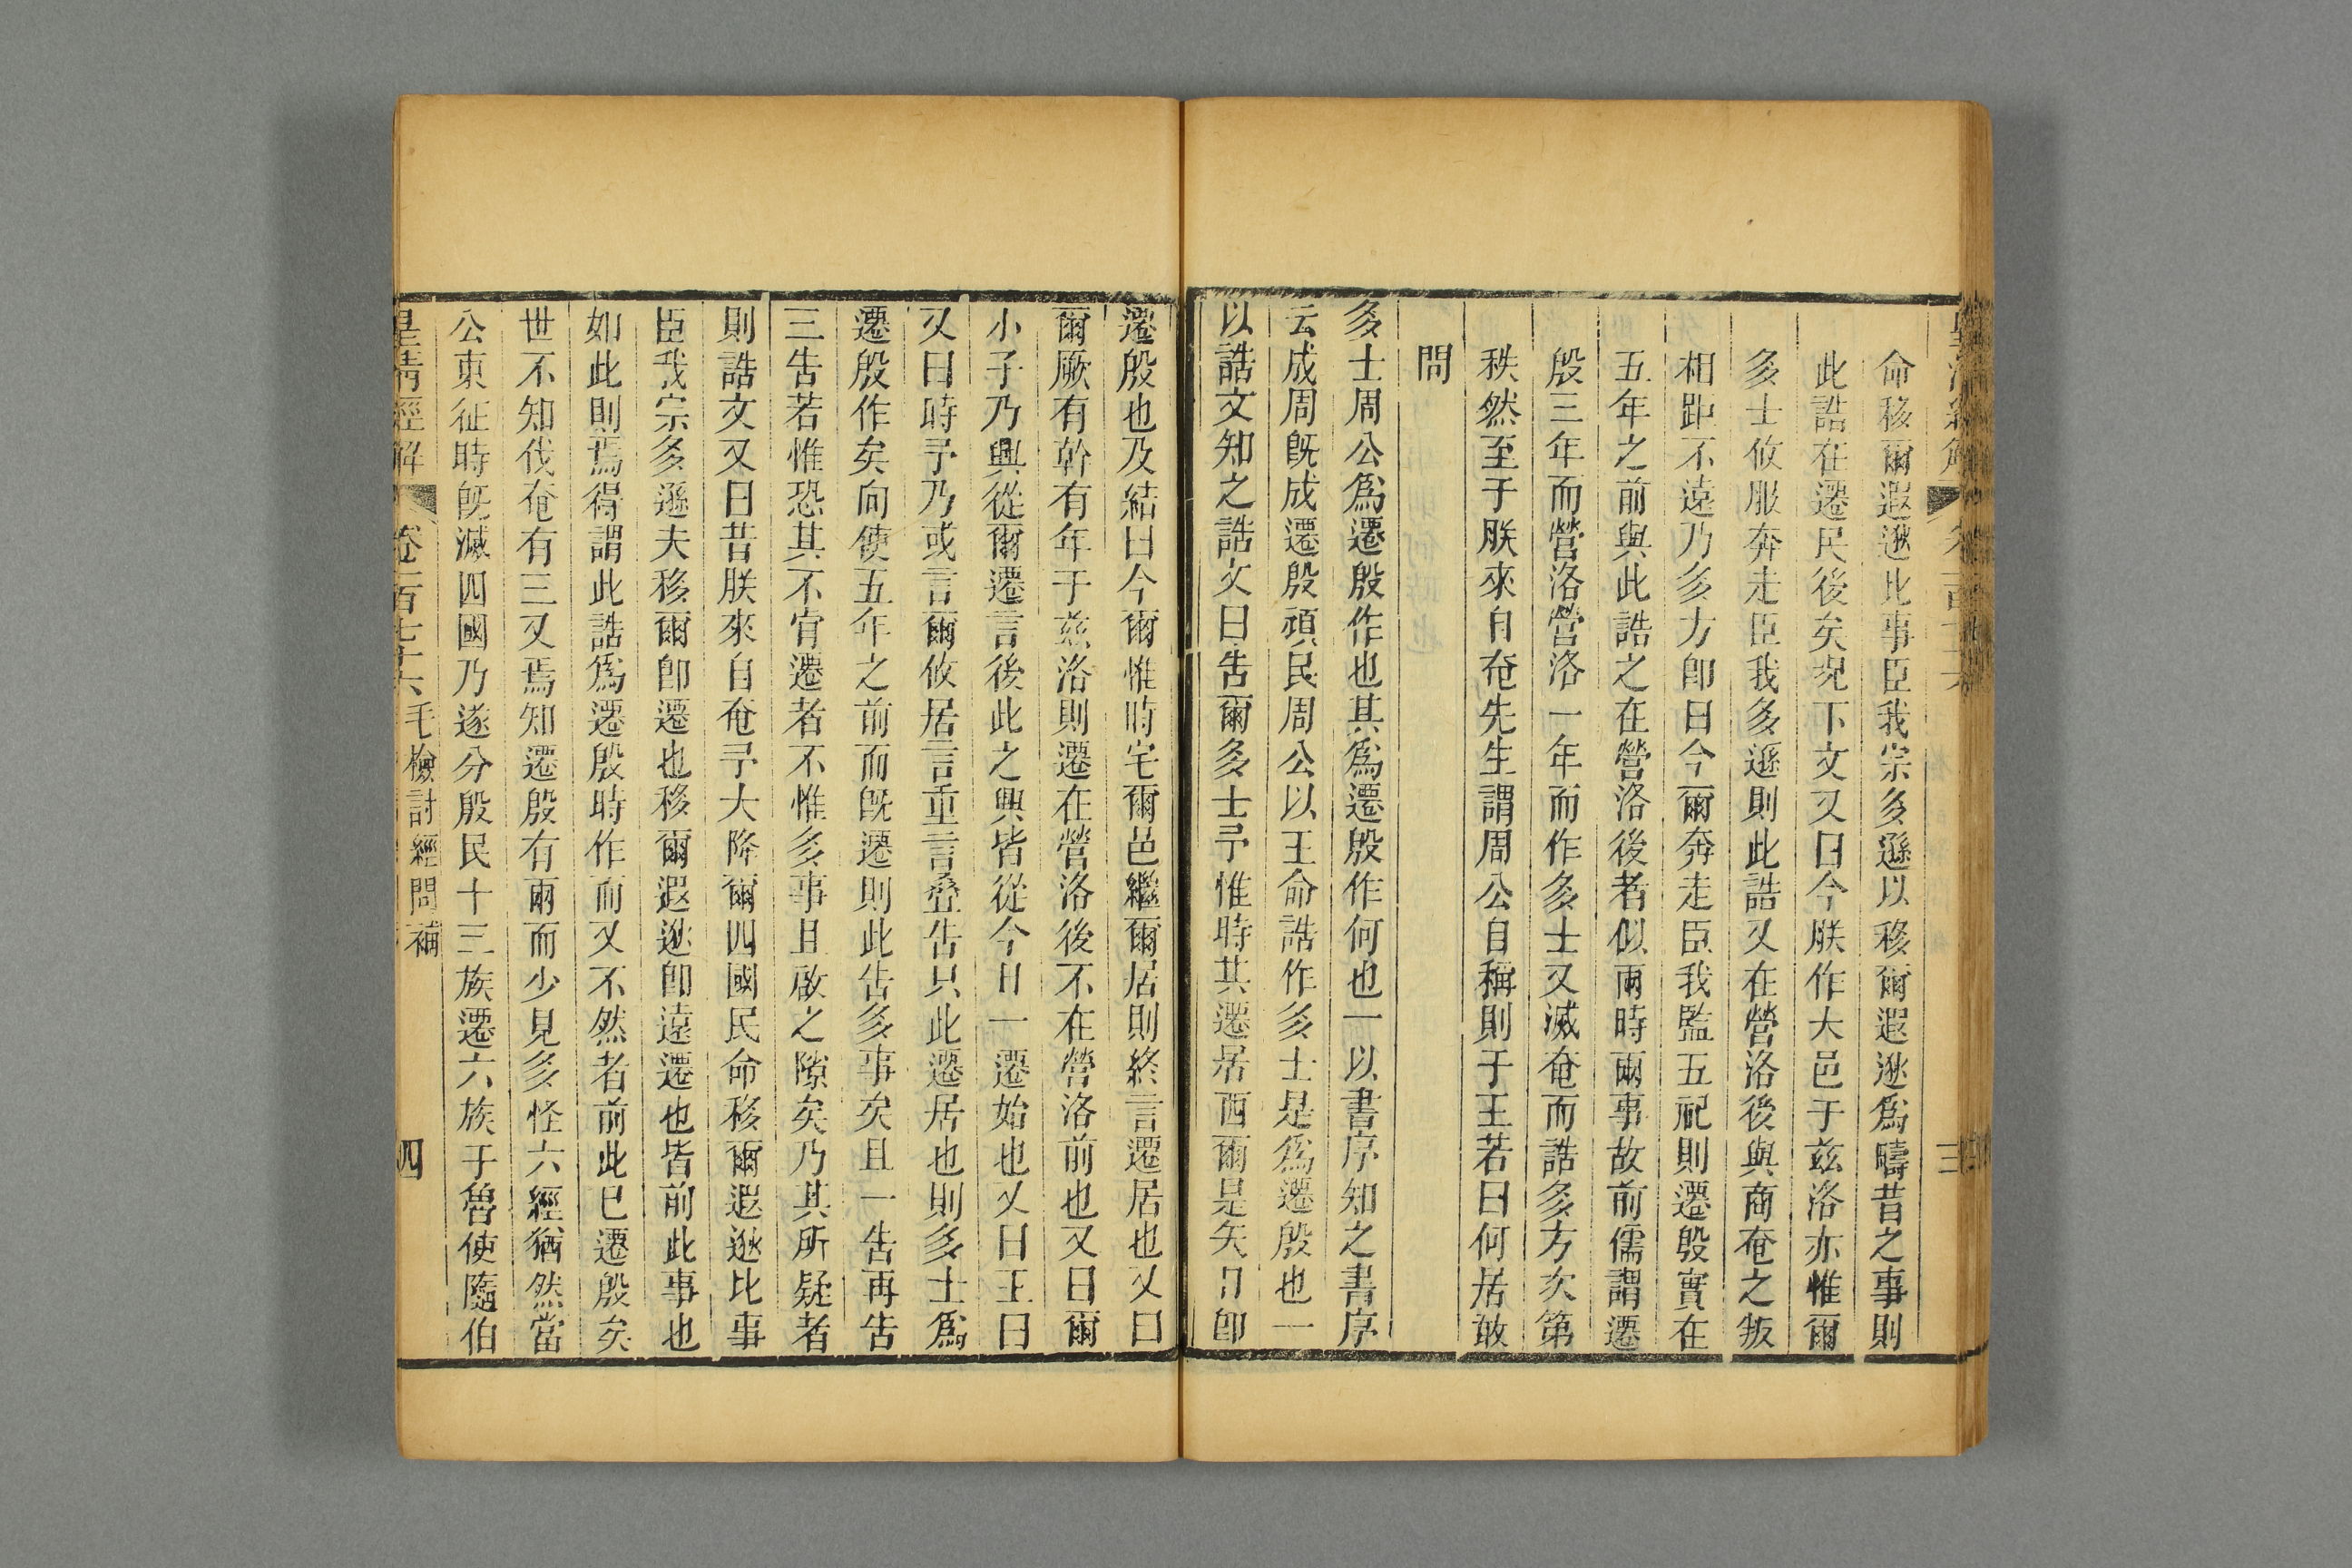 命移爾遐逖比事臣我宗多遜以移爾遐逖爲疇昔之事則
此誥在遷民後矣况下文又曰今朕作大邑于茲洛亦惟爾
多士攸服奔走臣我多遜則此誥又在營洛後與商奄之叛
相距不遠乃多方卽曰今爾奔走臣我監五祀則遷殷實在
五年之前與此誥之在營洛後者似兩時兩事故前儒謂遷
殷三年而營洛營洛一年而作多士又滅奄而誥多方次第
秩然至于朕來自奄先生謂周公自稱則于王若曰何居敢
問
多士周公爲遷殷作也其爲遷殷作何也一以書序知之書序
云成周旣成遷殷頑民周公以王命誥作多士是爲遷殷也一
以誥文知之誥文曰告爾多士予惟時其遷居西爾是矣曰卽
遷殷也及結曰今爾惟時宅爾邑繼爾居則終言遷居也又曰
爾厥有幹有年于茲洛則遷在營洛後不在營洛前也又曰爾
小子乃興從爾遷言後此之興皆從今日一遷始也又曰王曰
又曰時予乃或言爾攸居言重言叠告只此遷居也則多士爲
遷殷作矣向使五年之前而旣遷則此告多事矣且一告再告
三告若惟恐其不肯遷者不惟多事且啟之隙矣乃其所疑者
則誥文又曰昔朕來自奄予大降爾四國民命移爾遐逖比事
臣我宗多遜夫移爾卽遷也移爾遐逖卽遠遷也皆前此事也
如此則焉得謂此誥爲遷殷時作而又不然者前此已遷殷矣
世不知伐奄有三又焉知遷殷有兩而少見多怪六經猶然當
公東征時旣滅四國乃遂分殷民十三族遷六族于魯使隨伯
皇清經解 卷一百七十六 毛檢討經問補 四
三